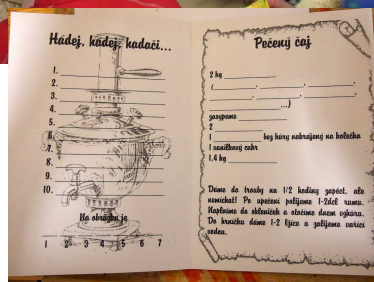 Hádej, hádej, hadači...
1.
2.
3.
4.
5.
6.
7.
8.
9.
10.
Na obrázku je
1 2 3 4 5 6 7
Pečený čaj
2 kg
( , , ,
, , ,
...)
zasypeme
2
1 bez kůry nakrájený na kolečka
1 vanilkový cukr
1,4 kg
Dáme do trouby na 1/2 hodiny zapéct, ale
nemíchat! Po upečení polijeme 1-2del rumu.
Naplníme do skleniček a otočíme dnem vzhůru.
Do hrníčku dáme 1-2 lžíce a zalijeme vařící
vodou.